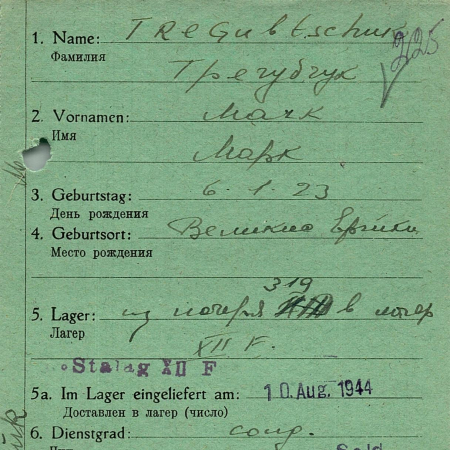 1. Name: TReGubtschuk
Фамилия
Трегубчук
225
2. Vornamen: Марк
Имя
Марк
3. Geburtstag: 6.1.23
День рождения
4. Geburtsort: Великие
Место рождения
319
5. Lager: из лагеря в лагер
Лагер
XII F.
Stalag XII F
5a. Im Lager eingeliefert am: 10. Aug. 1944
Доставлен в лагер (число)
6. Dienstgrad: солд.
Sold